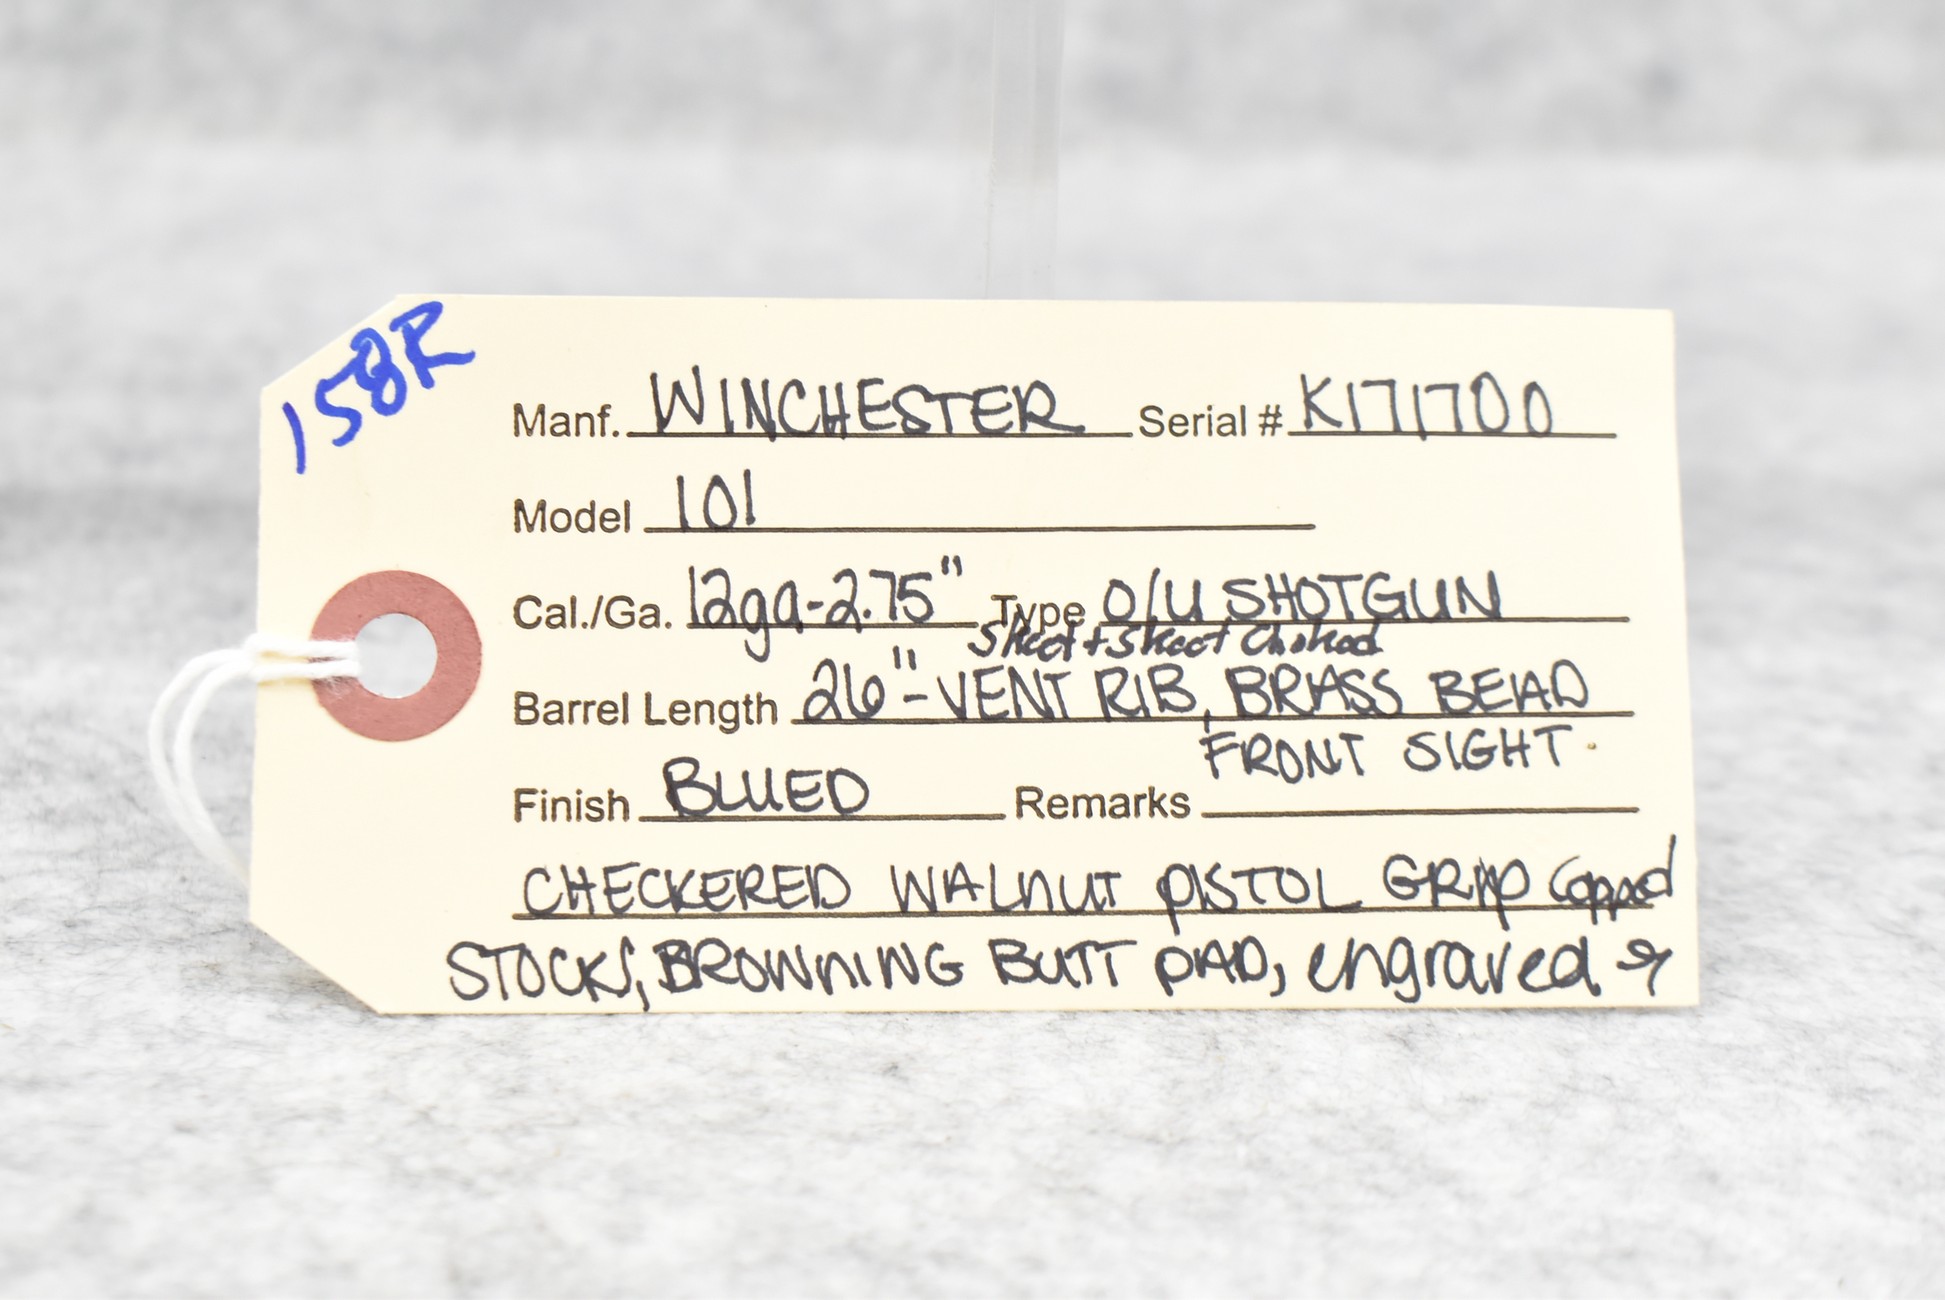 158R
Manf. WINCHESTER Serial # K171700
Model 101
Cal./Ga. 12ga-2.75" Type O/U SHOTGUN
Skeet + Skeet Choked
Barrel Length 26"-VENT RIB, BRASS BEAD
FRONT SIGHT
Finish BLUED Remarks
CHECKERED WALNUT PISTOL GRIP Capped
STOCKS, BROWNING BUTT PAD, engraved